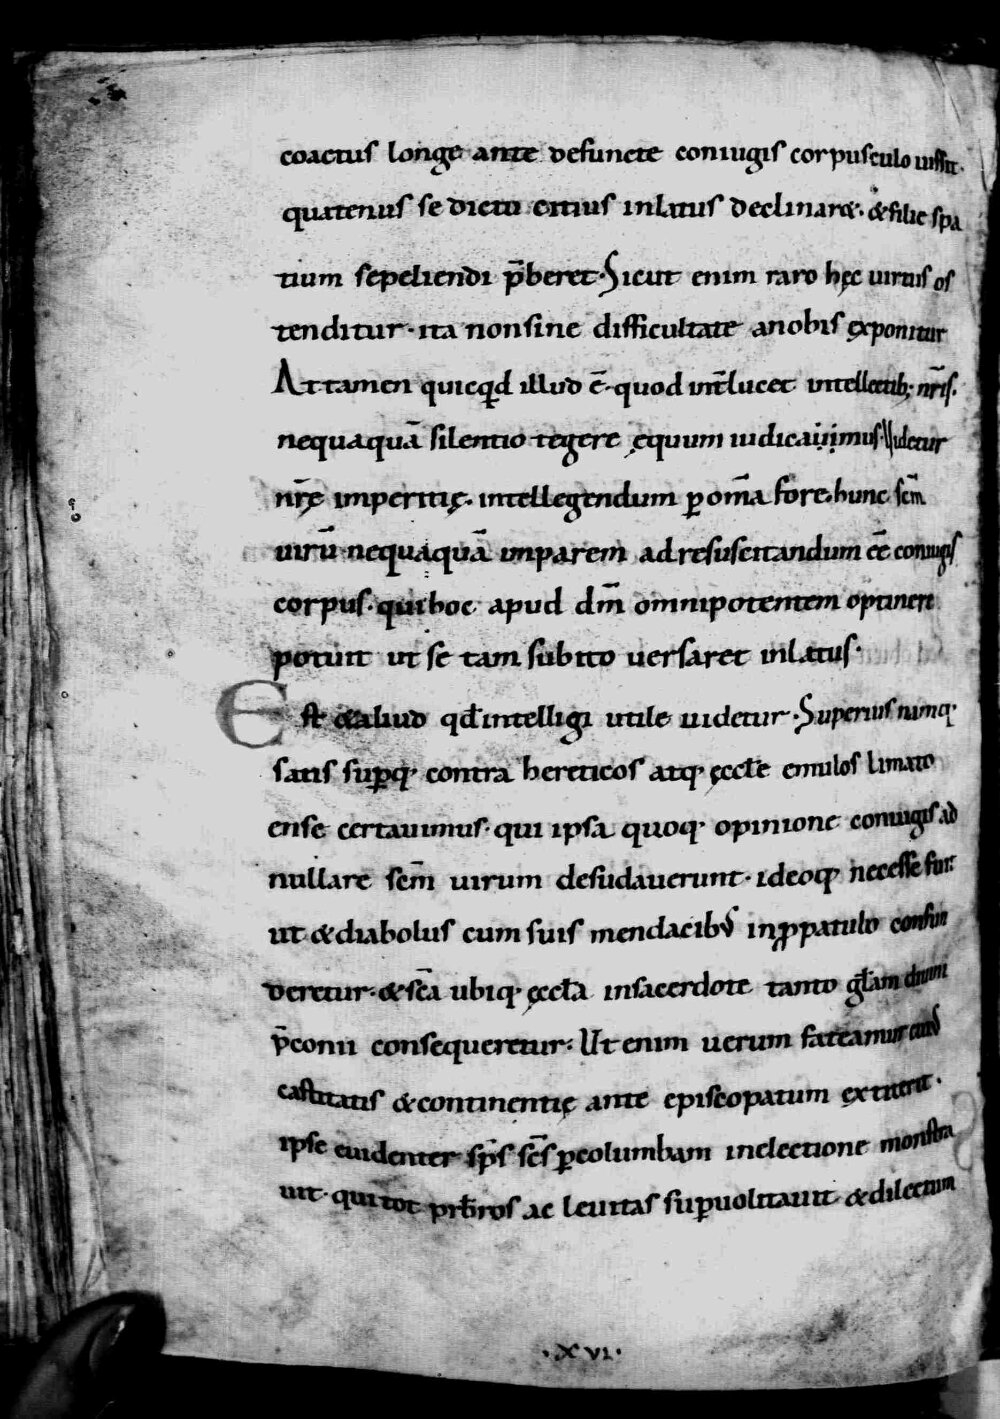 coactus longe ante defuncte coniugis corpusculo iussit.
quatenus se dicto citius inlatus declinar&. & filie spa
tium sepeliendi p̄beret. Sicut enim raro hęc uirtus os
tenditur. ita nonsine difficultate anobis exponitur
Attamen quicq̄d illud ē. quod int̄lucet intellectib; nr̄is.
nequaquā silentio tegere ęquum iudicauimus. Videtur
nr̄ę imperitię. intellegendum p̱ om̄a fore. hunc sc̄m
uirū nequaquā imparem adresuscitandum eē coniugis
corpus. qui hoc apud dm̄ omnipotentem optinere
potuit ut se tam subito uersaret inlatus.
Est &aliud qd̄ intelligi utile uidetur. Superius namq·
satis sup̱q· contra hereticos atq· ęccłe emulos limato
ense certauimus. qui ipsa quoq· opinione coniugis ad
nullare sc̄m uirum desudauerunt. ideoq· necesse fuit
ut &diabolus cum suis mendacibus inp̱patulo confun
deretur. &sc̄a ubiq· ęccła insacerdote tanto gł̄am diuini
p̄conii consequeretur. Ut enim uerum fateamur cuius
castitatis &continentię ante episcopatum extiterit.
ipse euidenter sp̄s sc̄s p̱columbam inelectione monstra
uit. qui tot prb̄ros ac leuitas sup̱uolitauit &dilectum
.XVI.